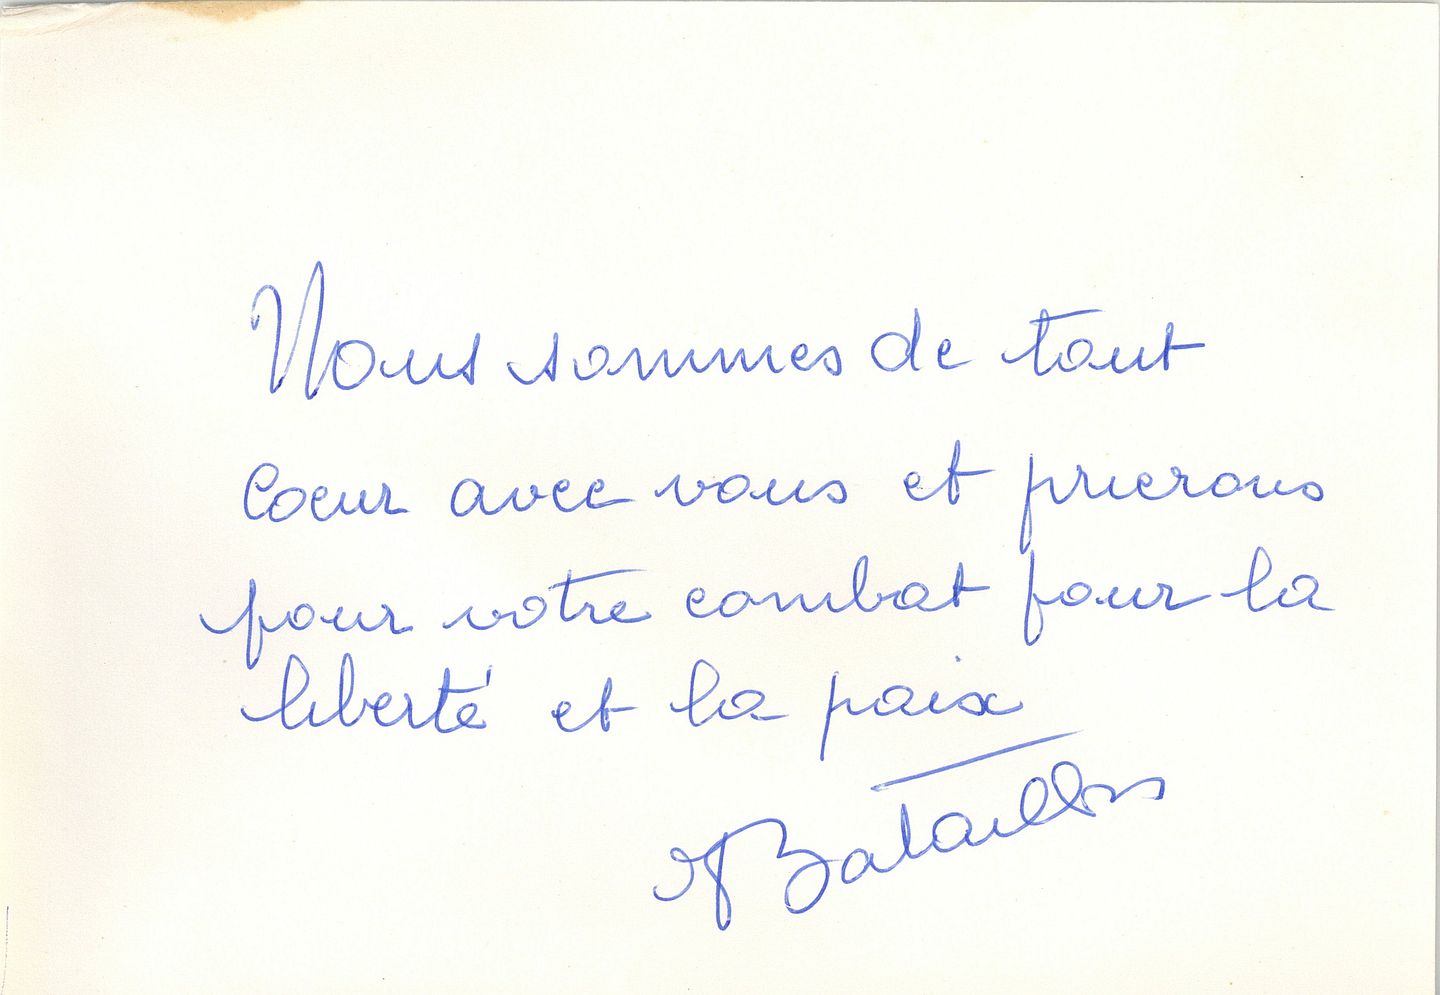 Nous sommes de tout
coeur avec vous et prierons
pour votre combat pour la
liberté et la paix
Bataillon